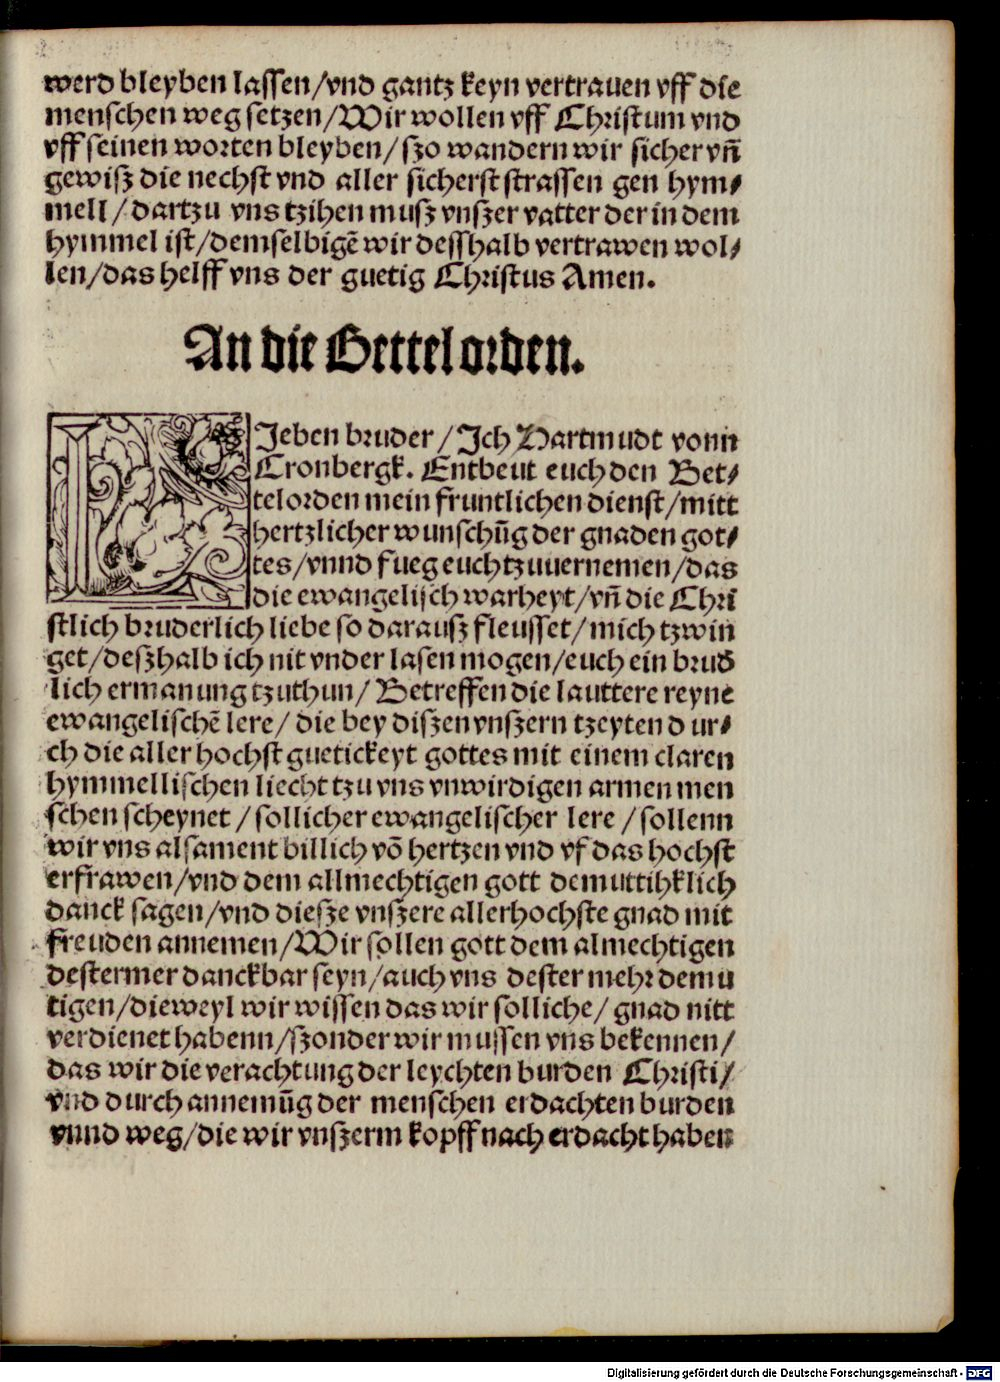 werd bleyben lassen/vnd gantz keyn vertrauen vff die
menschen weg setzen/Wir wollen vff Christum vnd
vff seinen worten bleyben/szo wandern wir sicher vñ
gewisz die nechst vnd aller sicherst strassen gen hym⸗
mell/dartzu vns tzihen musz vnszer vatter der in dem
hymmel ist/demselbigē wir desshalb vertrawen wol⸗
len/das helff vns der guetig Christus Amen.
An die Bettel orden.
LJeben bruder/Jch Hartmudt vonn
Cronbergk. Entbeut euch den Bet⸗
telorden mein fruntlichen dienst/mitt
hertzlicher wunschūg der gnaden got⸗
tes/vnnd fueg euch tzuuernemen/das
die ewangelisch warheyt/vñ die Chri
stlich bruderlich liebe so darausz fleusset/mich tzwin
get/deszhalb ich nit vnder lasen mogen/euch ein brud̄
lich ermanung tzuthun/Betreffen die lauttere reyne
ewangelischē lere/die bey diszen vnszern tzeyten dur⸗
ch die aller hochst guetickeyt gottes mit einem claren
hymmellischen liecht tzu vns vnwirdigen armen men
schen scheynet/sollicher ewangelischer lere/sollenn
wir vns alsament billich vō hertzen vnd vf das hochst
erfrawen/vnd dem allmechtigen gott demuttihklich
danck sagen/vnd diesze vnszere allerhochste gnad mit
freuden annemen/Wir sollen gott dem almechtigen
destermer danckbar seyn/auch vns dester mehr demu
tigen/dieweyl wir wissen das wir solliche/gnad nitt
verdienet habenn/szonder wir mussen vns bekennen/
das wir die verachtung der leychten burden Christi/
vnd durch annemūg der menschen erdachten burden
vnnd weg/die wir vnszerm kopff nach erdacht haben
Digitalisierung gefördert durch die Deutsche Forschungsgemeinschaft - DFG